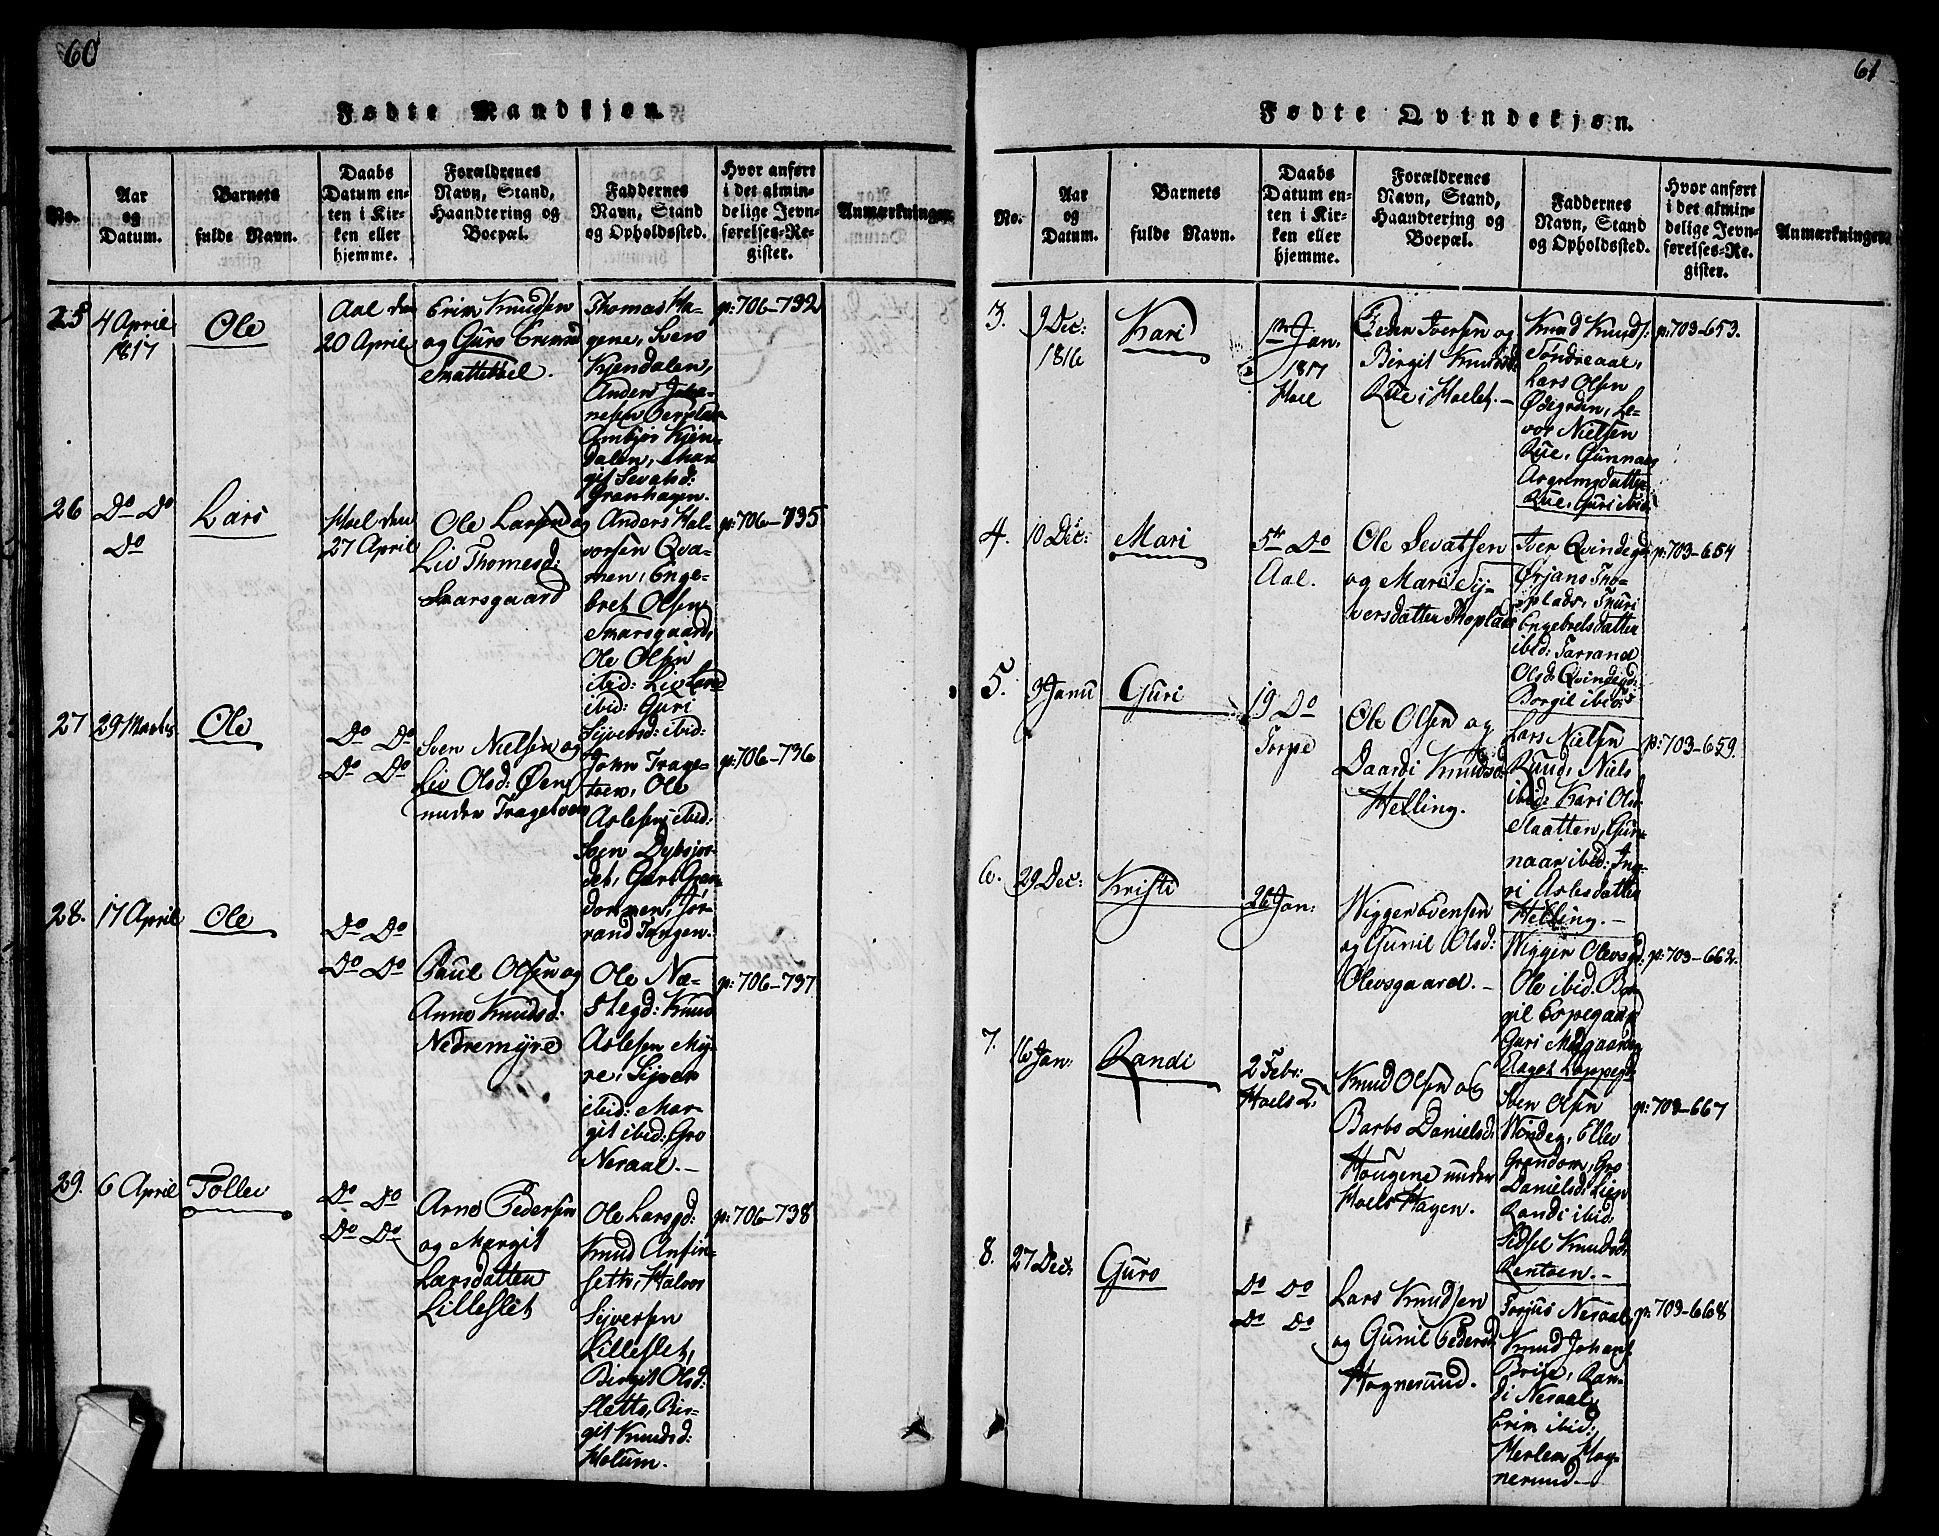 60
Fødte Mandkjøn.
No.
Aar
og
Datum.
Barnets
fulde Navn.
Daabs
Datum en-
ten i Kir-
ken eller
hjemme.
Forældrenes
Navn, Stand,
Haandtering og
Boepæl.
Faddernes
Navn, Stand
og Opholdssted.
Hvor anført
i det almin-
delige Jevn-
førelses-Re-
gister.
Anmærkninger.
25
4 April
1817
Ole
Aal den
20 April
Erim Knudsen
og Guro
Thomas Ha-
gene, Svero
Kjendalen,
Anders Joha-
nesen
Ambjør Kjen-
dalen, Mar
git Sevatsd:
Granhagen.
p: 706-732
26
Do Do
Do
Lars
Hoel den
27 April
Ole Larsen og
Liv Thomesd:
Skarsgaard
Anders Hal-
vorsen Qva-
men, Enge-
bret Olsen
Skarsgaard,
Ole Olsen
ibid: Liv Larsd
ibid: Guri
Sijversd: ibid:
p: 706-735
27
29 Martii
Ole
Do Do
Do Do
Sven Nielsen og
Liv Olsd: Øen
under Tragetoen
John Trage-
toen, Ole
Aslesen ibid:
Sven Dybsjor-
det, Guri Gran-
dommen, Jør-
rand Tangen.
p: 706-736
28.
17 April
Ole
Do Do
Do Do
Paul Olsen og
Anne Knudsd:
Nedremyre
Ole Næ-
stegd: Knud
Aslesen My-
re, Sijver
ibid: Mar-
git ibid: Gro
Neraal.-
p: 706-737
29.
6 April
Tollev
Do Do
Do Do
Arne Pedersen
og Margit
Larsdatten
Lilleslet
Ole Larsgd:
Knud Anfin-
sett, Halvor
Sijversen
Lilleslet,
Birgit Olsd:
Slette, Bir-
git Knudsd:
Holum.
p: 706-738
61
Fødte Qvindekjøn.
No.
Aar
og
Datum.
Barnets
fulde Navn.
Daabs
Datum en-
ten i Kir-
ken eller
hjemme.
Forældrenes
Navn, Stand,
Haandtering og
Boepæl.
Faddernes
Navn, Stand
og Opholdssted.
Hvor anført
i det almin-
delige Jevn-
førelses-Re-
gister.
Anmærkninger.
3.
9 Dec:
1816
Kari
1ste Jan.
1817
Hoel
Peder Iversen og
Birgit Knudsd:
Rue i Hoelet.-
Knud Knuds.
Søndreaal,
Lars Olsen
Ødegrden, Le-
vor Nielsen
Rue, Gunnaar
Argrimsdatter
Rue, Guri ibid
p: 703-653.
4.
10 Dec:
Mari
5te Do
Aal.
Ole Sevatsen
og Mari Sij-
versdatter Thoplads
Iver Qvindegd:
Ørjans Tho-
plads, Thuri
Engebretsdatter
ibid: Tarrand
Olsd: Qvindegd:
Borgil ibid:
p: 703-654
5.
3 Janu
Guri
19 Do
Torpe
Ole Olsen og
Daardi Knudsd:
Helling.
Lars Nielsen
Ruud, Niels
ibid: Kari Olsd
Slaatten, Gun-
naar ibid: Ing-
ri Aslesdatter
Helling.-
p: 703-659.
6.
29 Dec:
Kristi
26 Jan:
Wigger Evensen
og Gunil Olsd:
Olevsgaard.-
Wigger Olevsgd:
Ole ibid. Bor-
gil Espegaard
Guri Medgaarden
Aagot Loppegd:
p: 703-662.
7.
16 Jan:
Randi
2 Febr:
Hoels
Knud Olsen og
Barbo Danielsd:
Hougene under
Hoels Hagen.
Sven Olsen
Windeg, Ellev
Grøndom, Gro
Danielsd: Lien
Randi ibid:
Sidsel Knudsd:
Rentoen.-
p: 703-667
8.
27 Dec:
Guro
Do Do
Do Do
Lars Knudsen
og Gunil Pedersd
Hagnesund.
Torjus Neraal,
Knud Johans
Brise, Ran-
di Neraal,
Erim ibid:
Merlem Hag-
nesund.-
p: 703-668